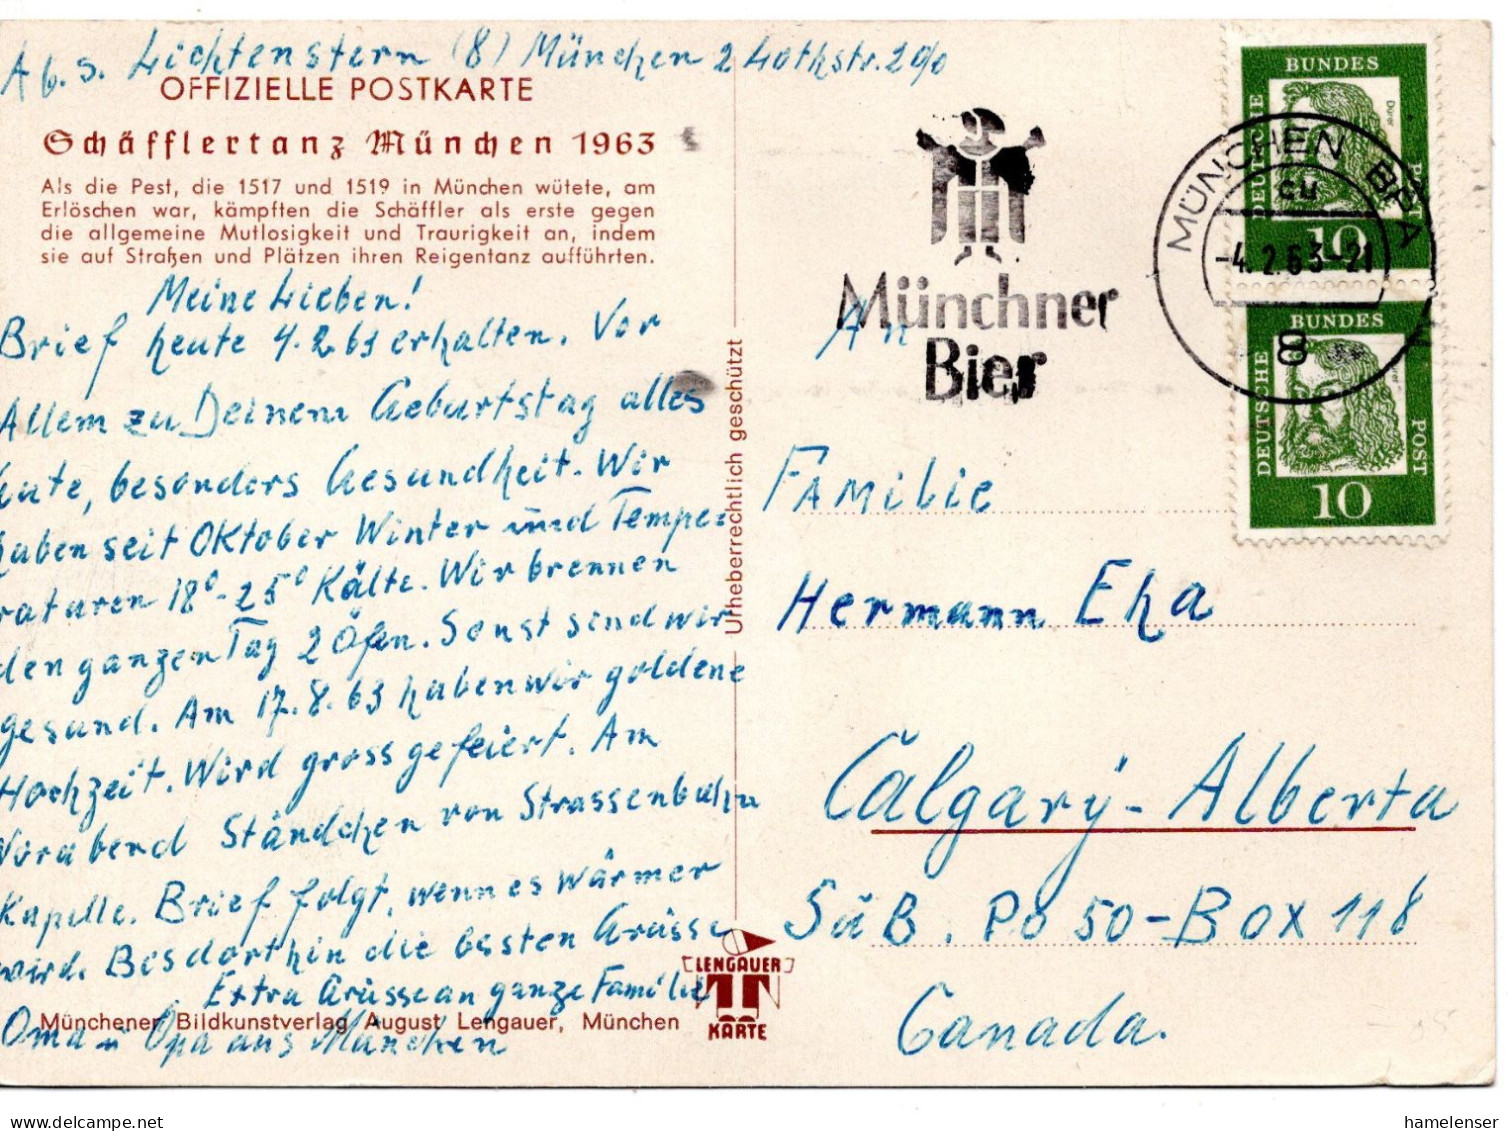 Abs. Lichtenstern (8) München 2 Lothstr. 29/0
OFFIZIELLE POSTKARTE
Schäfflertanz München 1963
Als die Pest, die 1517 und 1519 in München wütete, am
Erlöschen war, kämpften die Schäffler als erste gegen
die allgemeine Mutlosigkeit und Traurigkeit an, indem
sie auf Straßen und Plätzen ihren Reigentanz aufführten.
Meine Lieben!
Brief heute 4.2.63 erhalten. Vor
Allem zu Deinem Geburtstag alles
Gute, besonders Gesundheit. Wir
haben seit Oktober Winter und Tempe=
raturen 18°-25° Kälte. Wir brennen
den ganzen Tag 2 Öfen. Sonst sind wir
gesund. Am 17.8.63 haben wir goldene
Hochzeit. Wird gross gefeiert. Am
Vorabend Ständchen von Strassenbahn
Kapelle. Brief folgt, wenn es wärmer
wird. Bis dorthin die besten Grüsse
Extra Grüsse an ganze Familie
Oma u Opa aus München
Münchener Bildkunstverlag August Lengauer, München
LENGAUER
KARTE
Urheberrechtlich geschützt
Münchner
Bier
MÜNCHEN BPA
cu
-4.2.63-21
8
DEUTSCHE
BUNDES
POST
Dürer
10
DEUTSCHE
BUNDES
POST
10
An
Familie
Hermann Eha
Calgary - Alberta
SüB. Po 50-Box 118
Canada.
hamelenser